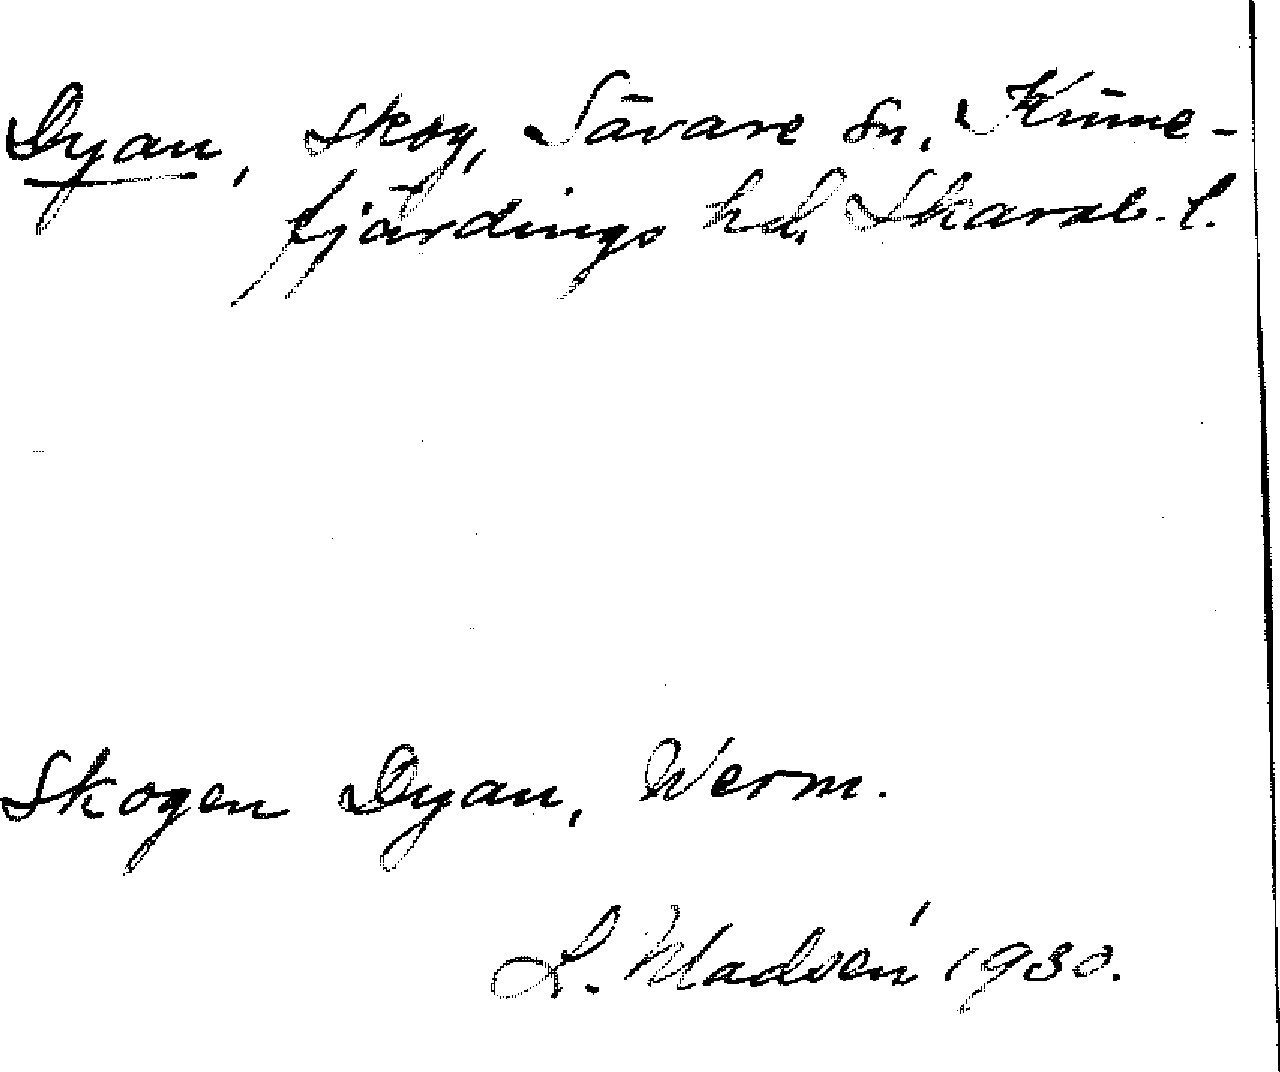 Dyan, skog, Sävare sn, Kinne-
fjärdings hd, Skarab. l.
Skogen Dyan, Werm.
L. Madsén 1930.